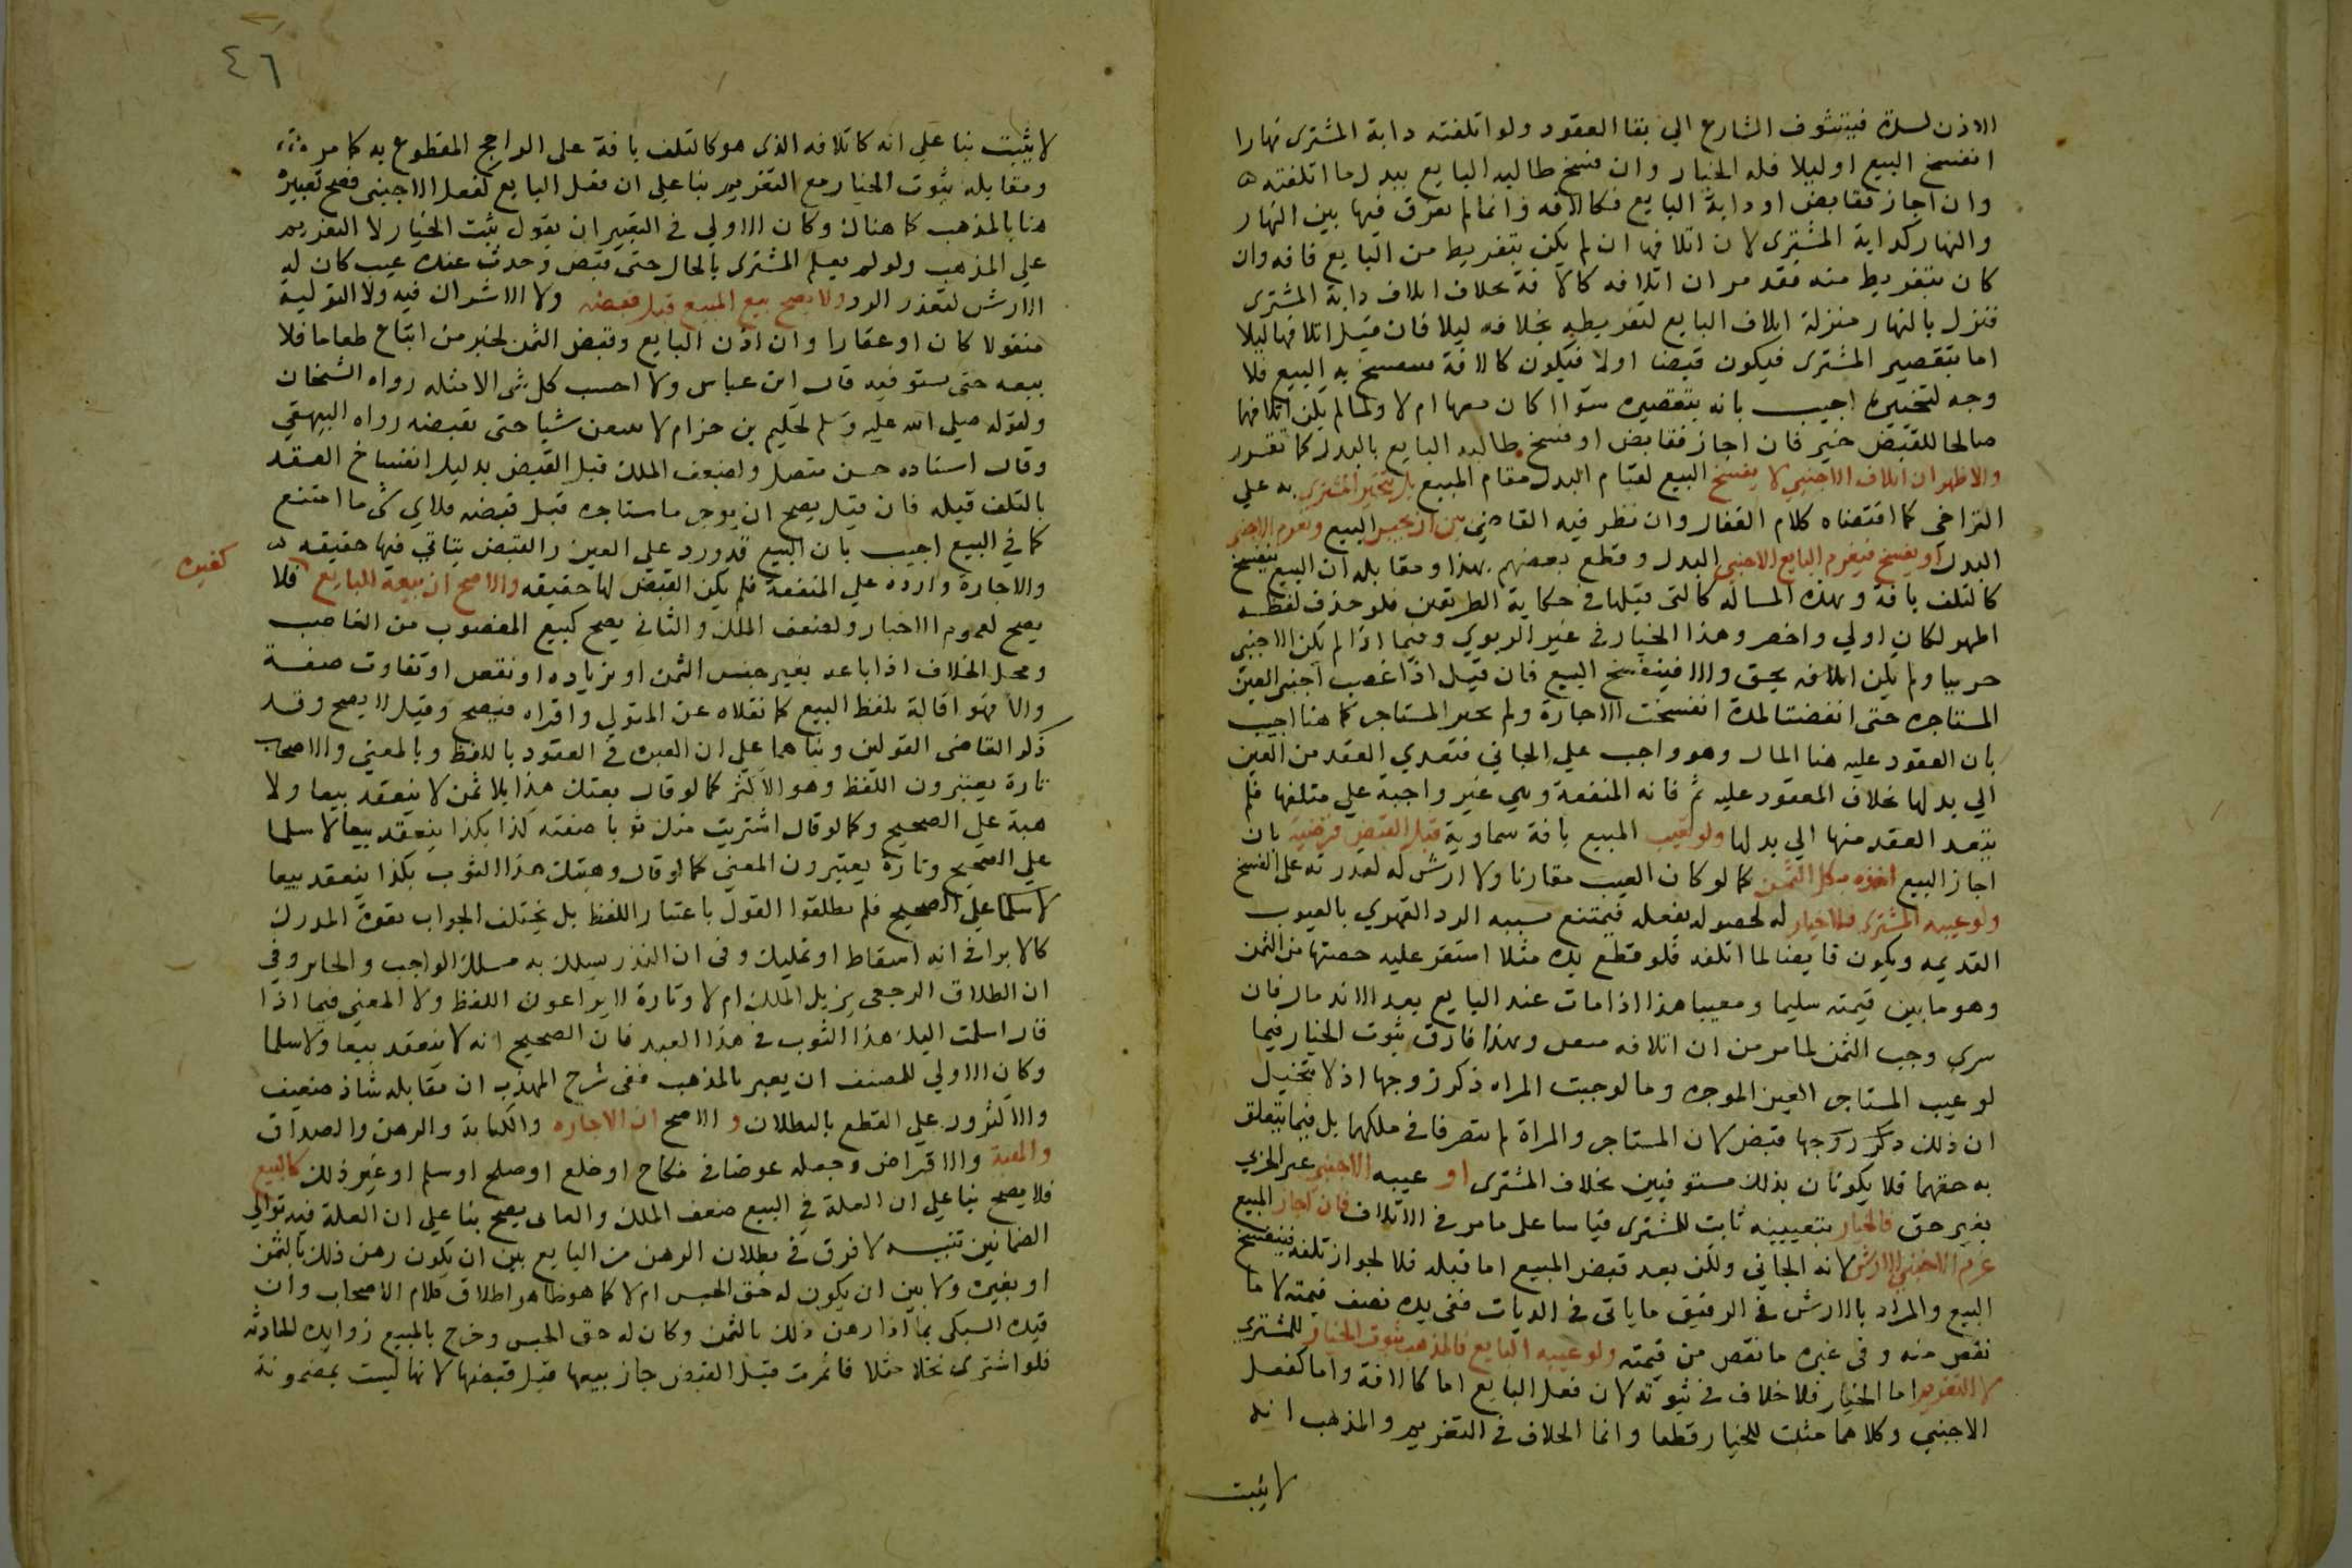 الاذن لسدة فيتشوف الشارع الي بقا العقود ولو اتلفته دابة المشترى نهارا
انفسخ البيع او ليلا فله الخيار وان فسخ طالبه البايع ببدل ما اتلفته
وان اجاز فقابض او دابة البايع فكالافه وانما لم يفرق فيها بين النهار
والنهار كدابة المشترى لان اتلافها ان لم يكن بتفريط من البايع فافه وان
كان بتفريط منه فقد مر ان اتلافه كالافة بخلاف اتلاف دابة المشترى
فنزل بالنهار منزلة اتلاف البايع لتفريطه بخلافه ليلا فان قيل اتلافها ليلا
اما بتقصير المشترى فيكون قبضا اولا فيكون كالافة فينفسخ به البيع فلا
وجه لتخييره اجيب بانه بتقصيره سوا اكان معها ام لا ولما لم يكن اتلافها
صالحا للقبض خير فان اجاز فقابض او فسخ طالبه البايع بالبدل كما تقرر
والاظهر ان اتلاف الاجنبي لا يفسخ البيع لقيام البدل مقام المبيع بل يتخير المشترى به علي
التراخي كما اقتضاه كلام القفال وان نظر فيه القاضي بين ان يجيز البيع ويغرم الاجنبي
البدل او يفسخ فيغرم البايع الاجنبي البدل وقطع بعضهم بهذا ومقابله ان البيع ينفسخ
كالتلف بافة وهذه المساله كالتى قبلها في حكاية الطريقين فلو حذف لفظه
اظهر لكان اولي واخصر وهذا الخيار في غير الربوي وفيما اذا لم يكن الاجنبي
حربيا ولم يكن اتلافه بحق والا فينفسخ البيع فان قيل اذا غصب اجنبي العين
المستاجره حتى انقضت المدة انفسخت الاجارة ولم يخير المستاجر كما هنا اجيب
بان العقود عليه هنا المال وهو واجب علي الجاني فتعدي العقد من العين
الي بدلها بخلاف المعقود عليه ثم فانه المنفعة وهي غير واجبة علي متلفها فلم
يتعد العقد منها الي بدلها ولو تعيب المبيع بافة سماوية قبل القبض فرضيه بان
اجاز البيع اخذه بكل الثمن كما لو كان العيب مقارنا ولا ارش له لقدرته على الفسخ
ولو عيبه المشترى فلا خيار له لحصوله بفعله فيمتنع بسببه الرد القهري بالعيوب
القديمه ويكون قابضا لما اتلفه فلو قطع يده مثلا استقر عليه حصتها من الثمن
وهو ما بين قيمته سليما ومعيبا هذا اذا مات عند البايع بعد الاندمال فان
سرى وجب الثمن لما مر من ان اتلافه قبض وبهذا فارق ثبوت الخيار فيما
لو عيب المستاجر العين الموجره وما لو جبت المراه ذكر زوجها اذ لا يتخيل
ان ذلك ذكر زوجها قبض لان المستاجر والمراة لم يتصرفا في ملكهما بل فيما يتعلق
به حقهما فلا يكونان بذلك مستوفيين بخلاف المشترى او عيبه الاجنبي غير الحربي
بغير حق فالخيار بتعييبه ثابت للمشترى قياسا على ما مر في الاتلاف فان اجاز المبيع
غرم الاجنبي الارش لانه الجاني ولكن بعد قبض المبيع اما قبله فلا لجواز تلفه فينفسخ
البيع والمراد بالارش في الرقيق ما ياتي في الديات ففي يده نصف قيمته لا ما
نقص منه وفي غيره ما نقص من قيمته ولو عيبه البايع فالمذهب ثبوت الخيار للمشتري
لا التغريم اما الخيار فلا خلاف في ثبوته لان فعل البايع اما كالافة واما كفعل
الاجنبي وكلاهما مثبت للخيار قطعا وانما الخلاف في التغريم والمذهب انه
لا يثبت
٤٦
لا يثبت بنا علي انه كاتلافه الذى هو كالتلف بافة على الراجح المقطوع به كما مر
ومقابله ثبوت الخيار مع التغريم بنا علي ان فعل البايع كفعل الاجنبي فصح تعبيره
هنا بالمذهب كما هناك وكان الاولي في التعبير ان يقول ثبت الخيار لا التغريم
علي المذهب ولو لم يعلم المشترى بالحال حتى قبض وحدث عنده عيب كان له
الارش لتعذر الرد ولا يصح بيع المبيع قبل قبضه ولا الاشراك فيه ولا التولية
منقولا كان او عقارا وان اذن البايع وقبض الثمن لخبر من ابتاع طعاما فلا
يبعه حتى يستوفيه قال ابن عباس ولا احسب كل شي الا مثله رواه الشيخان
ولقوله صلي الله عليه وسلم لحكيم بن حزام لا تبيعن شيا حتى تقبضه رواه البيهقي
وقال اسناده حسن متصل ولضعف الملك قبل القبض بدليل انفساخ العقد
بالتلف قبله فان قيل يصح ان يوجر ما ستاجره قبل قبضه فلاي شي ما امتنع
كما في البيع اجيب بان البيع قد ورد علي العين والقبض يتاتي فيها حقيقه
والاجارة وارده علي المنفعة فلم يكن القبض لها حقيقه والاصح ان بيعه للبايع فلا
كغيره
يصح لعموم الاخبار ولضعف الملك والثاني يصح كبيع المغصوب من الغاصب
ومحل الخلاف اذا باعه بغير جنس الثمن او بزياده او نقص او تفاوت صفة
والا فهو اقالة بلفظ البيع كما نقلاه عن المتولي واقراه فيصح وقيل لا يصح وقد
ذكر القاضي القولين وبناهما علي ان العبرة في العقود باللفظ وبالمعني والاصحاب
تارة يعتبرون اللفظ وهو الاكثر كما لو قال بعتك هذا بلا ثمن لا ينعقد بيعا ولا
هبة علي الصحيح وكما لو قال اشتريت منك ثوبا صفته كذا بكذا ينعقد بيعا لا سلما
علي الصحيح وتارة يعتبرون المعني كما لو قال وهبتك هذا الثوب بكذا ينعقد بيعا
لا سلما علي الصحيح فلم يطلقوا القول باعتبار اللفظ بل يختلف الجواب بقوة المدرك
كالابرا في انه اسقاط او تمليك وفي ان النذر يسلك به مسلك الواجب والجايز وفي
ان الطلاق الرجعي يزيل الملك ام لا وتارة لا يراعون اللفظ ولا المعني فيما اذا
قال اسلمت اليك هذا الثوب في هذا العبد فان الصحيح انه لا ينعقد بيعا ولا سلما
وكان الاولي للمصنف ان يعبر بالمذهب ففي شرح المهذب ان مقابله شاذ ضعيف
والاكثرون علي القطع بالبطلان و الاصح ان الاجاره والكتابة والرهن والصداق
والهبة والاقراض وجعله عوضا في نكاح او خلع او صلح او سلم او غير ذلك كالبيع
فلا يصح بنا علي ان العلة في البيع ضعف الملك والثاني يصح بنا علي ان العلة فيه توالي
الضمانين تنبيه لا فرق في بطلان الرهن من البايع بين ان يكون رهن ذلك بالثمن
او بغيره ولا بين ان يكون له حق الحبس ام لا كما هو ظاهر اطلاق كلام الاصحاب وان
قيده السبكي بما اذا رهن ذلك بالثمن وكان له حق الحبس وخرج بالمبيع زوايده الحادثه
فلو اشترى نخلا مثلا فاثمرت قبل القبض جاز بيعها قبل قبضها لانها ليست بمضمونة